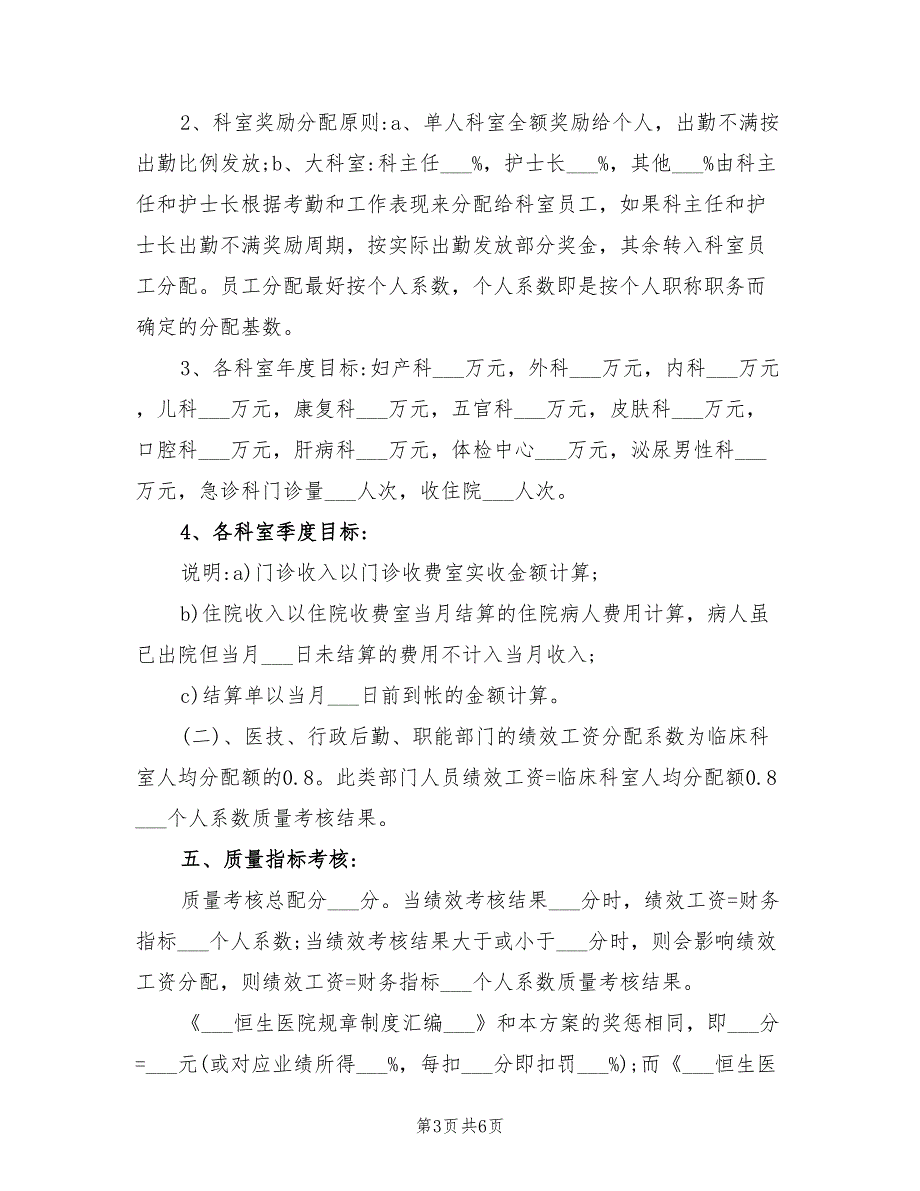 2、科室奖励分配原则:a、单人科室全额奖励给个人，出勤不满按
出勤比例发放;b、大科室:科主任___%，护士长___%，其他___%由科主
任和护士长根据考勤和工作表现来分配给科室员工，如果科主任和护
士长出勤不满奖励周期，按实际出勤发放部分奖金，其余转入科室员
工分配。员工分配最好按个人系数，个人系数即是按个人职称职务而
确定的分配基数。
3、各科室年度目标:妇产科___万元，外科___万元，内科___万元
，儿科___万元，康复科___万元，五官科___万元，皮肤科___万元，
口腔科___万元，肝病科___万元，体检中心___万元，泌尿男性科___
万元，急诊科门诊量___人次，收住院___人次。
4、各科室季度目标:
说明:a)门诊收入以门诊收费室实收金额计算;
b)住院收入以住院收费室当月结算的住院病人费用计算，病人虽
已出院但当月___日未结算的费用不计入当月收入;
c)结算单以当月___日前到帐的金额计算。
(二)、医技、行政后勤、职能部门的绩效工资分配系数为临床科
室人均分配额的0.8。此类部门人员绩效工资=临床科室人均分配额0.8
___个人系数质量考核结果。
五、质量指标考核:
质量考核总配分___分。当绩效考核结果___分时，绩效工资=财务
指标___个人系数;当绩效考核结果大于或小于___分时，则会影响绩效
工资分配，则绩效工资=财务指标___个人系数质量考核结果。
《___恒生医院规章制度汇编___》和本方案的奖惩相同，即___分
=___元(或对应业绩所得___%，每扣___分即扣罚___%);而《___恒生医
第3页 共6页